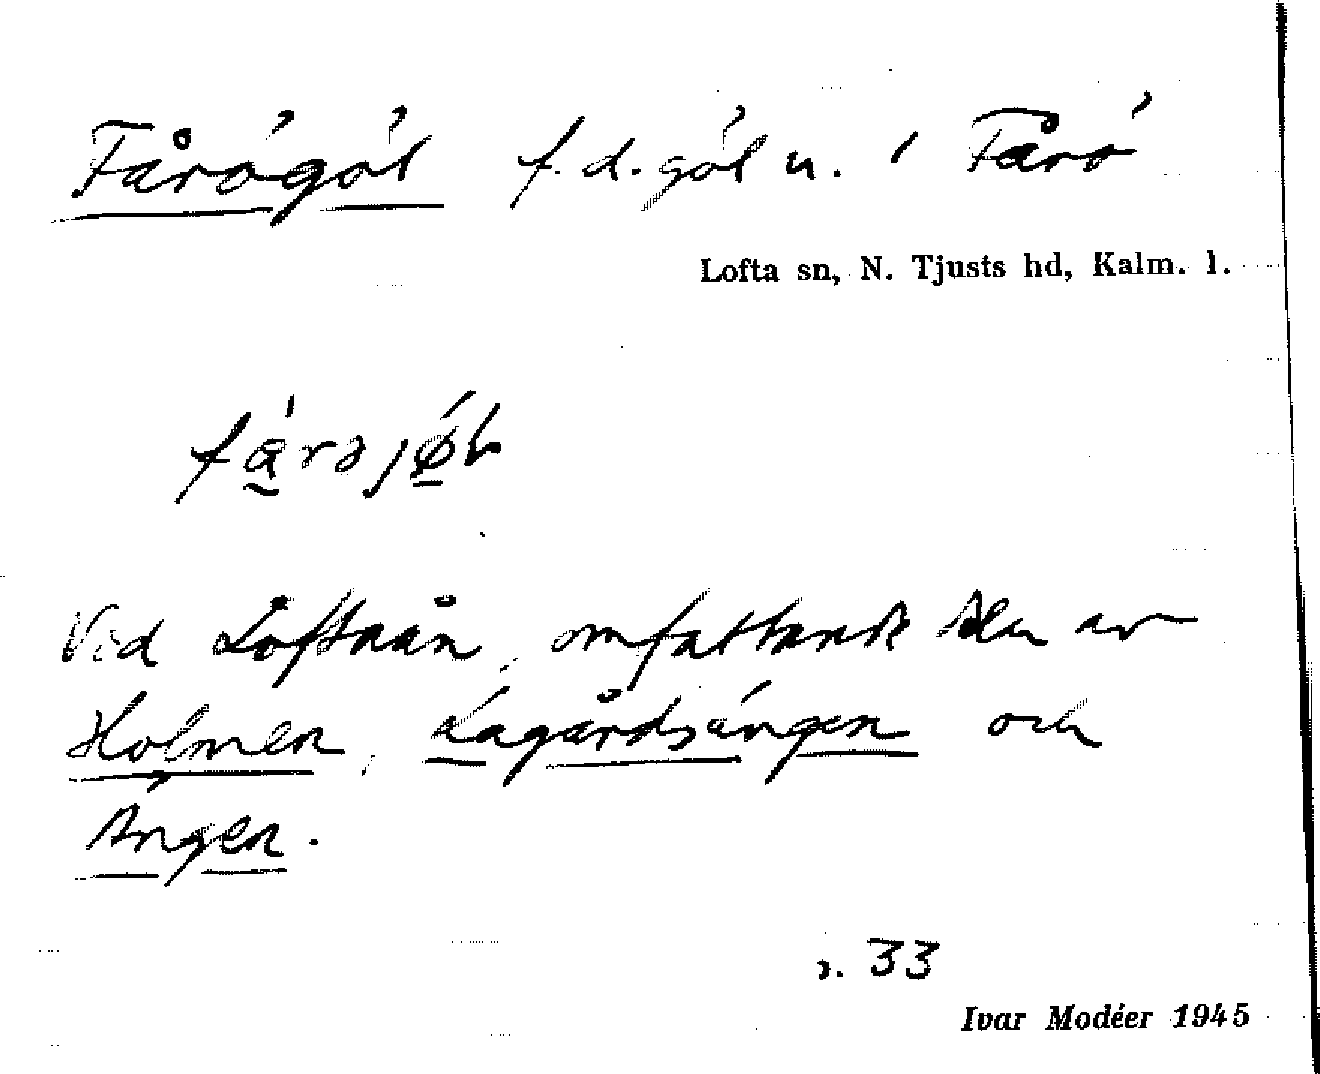 Fårögöl f.d. göl u. i Fårö
Lofta sn, N. Tjusts hd, Kalm. l.
Vid Loftaån, omfattande delar av
Holmen, Lagårdsängen och
Ängen.
s. 33
Ivar Modéer 1945